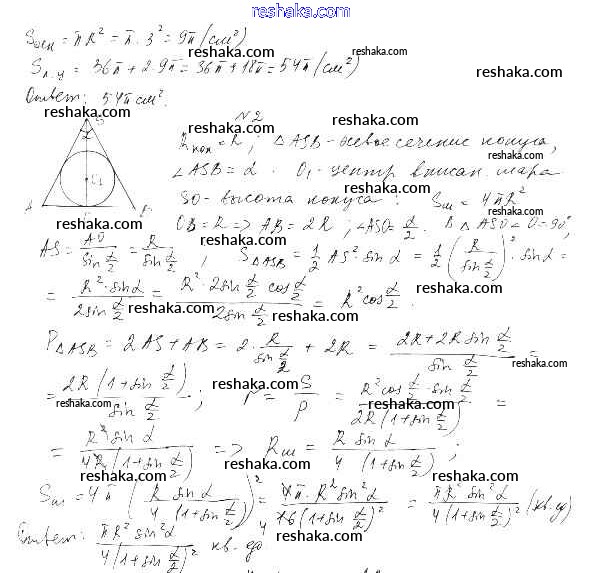 reshaka.com
Sосн = πR² = π · 3² = 9π (см²)
Sп.у = 36π + 2·9π = 36π + 18π = 54π (см²)
Ответ: 54π см².
N2
Rкон = R; △ASB - осевое сечение конуса,
∠ASB = α. O₁ - центр впис. шара
SO - высота конуса: Sш = 4πR²
OB = R => AB = 2R, ∠ASO = α/2. В △ASO ∠O = 90°,
AS = AO / sin α/2 = R / sin α/2; S△ASB = 1/2 AS² · sin α = 1/2 (R / sin α/2)² · sin α =
= R² · sin α / 2 sin α/2 = R² · 2 sin α/2 cos α/2 / 2 sin α/2 = R² cos α/2.
P△ASB = 2AS + AB = 2 · R / sin α/2 + 2R = 2R + 2R sin α/2 / sin α/2 =
= 2R (1 + sin α/2) / sin α/2; r = S/P = R² cos α/2 · sin α/2 / 2R (1 + sin α/2) =
= R² sin α / 4R (1 + sin α/2) => Rш = R sin α / 4 (1 + sin α/2);
Sш = 4π (R sin α / 4 (1 + sin α/2))² = 4π · R² sin² α / 16 (1 + sin α/2)² = πR² sin² α / 4 (1 + sin α/2)² (кв. ед)
Ответ: πR² sin² α / 4 (1 + sin α/2)² кв. ед